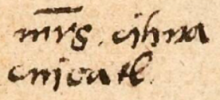 m̅r̅s. cihua
cuicatl.